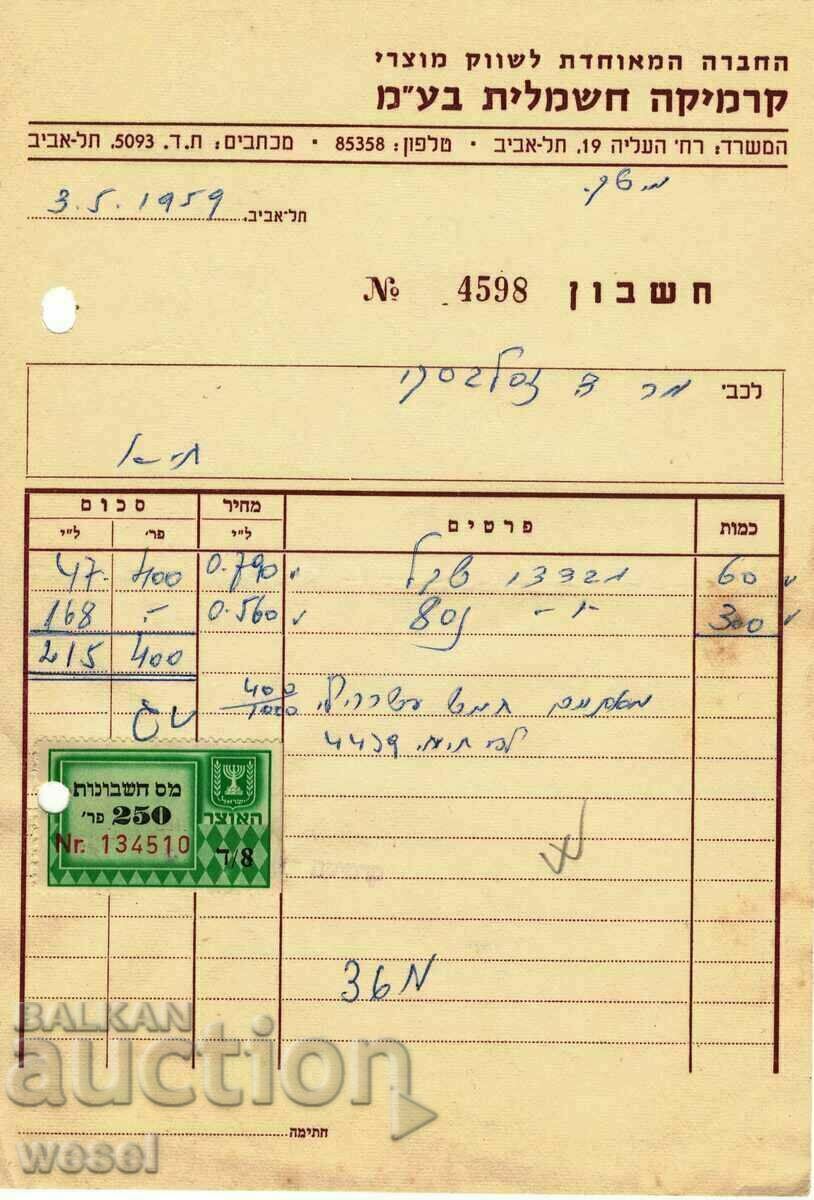 החברה המאוחדת לשווק מוצרי
קרמיקה חשמלית בע"מ
המשרד: רח' העליה 19, תל-אביב • טלפון: 85358 • מכתבים: ת.ד. 5093, תל-אביב
תל-אביב, 3.5.1959
חשבון № 4598
לכב' מר
כמות פרטים מחיר סכום
ל"י פר' ל"י
60 0.790 400 47.-
300 0.560 -. 168
400 215
מאתיים חמש עשרה ל"י 400/1000
4439
מס חשבונות
250 פר'
האוצר
ישראל
Nr. 134510
ד/8
36
חתימה
BALKAN
auction
wesel